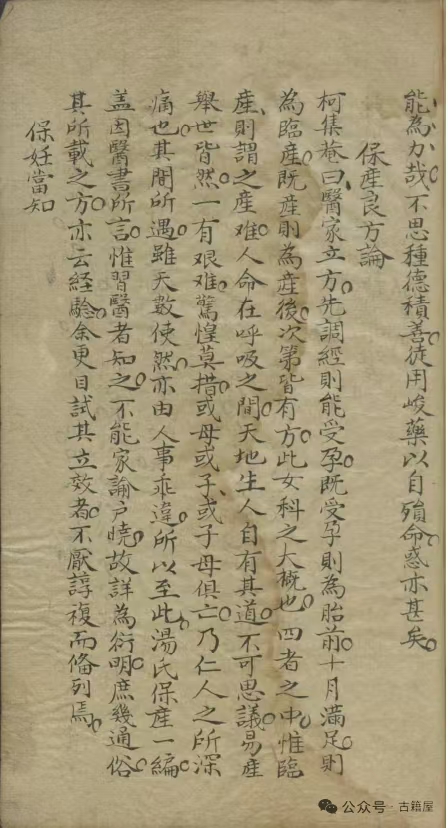 能為力哉不思種德積善徒用峻藥以自殞命惑亦甚矣
保產良方論
柯集菴曰醫家立方先調經則能受孕既受孕則為胎前十月滿足則
為臨產既產則為產後次第皆有方此女科之大概也四者之中惟臨
產則謂之產难人命在呼吸之間天地生人自有其道不可思議易產
舉世皆然一有艰难驚惶莫措或母或子或子母俱亡乃仁人之所深
痛也其間所遇雖天數使然亦由人事乖違所以至此湯氏保產一編
盖因醫書所言惟習醫者知之不能家諭户曉故詳為衍明庶幾通俗
其所載之方亦云经驗余更目試其立效者不厭諄複而俻列焉
保妊當知
公众号·古籍屋